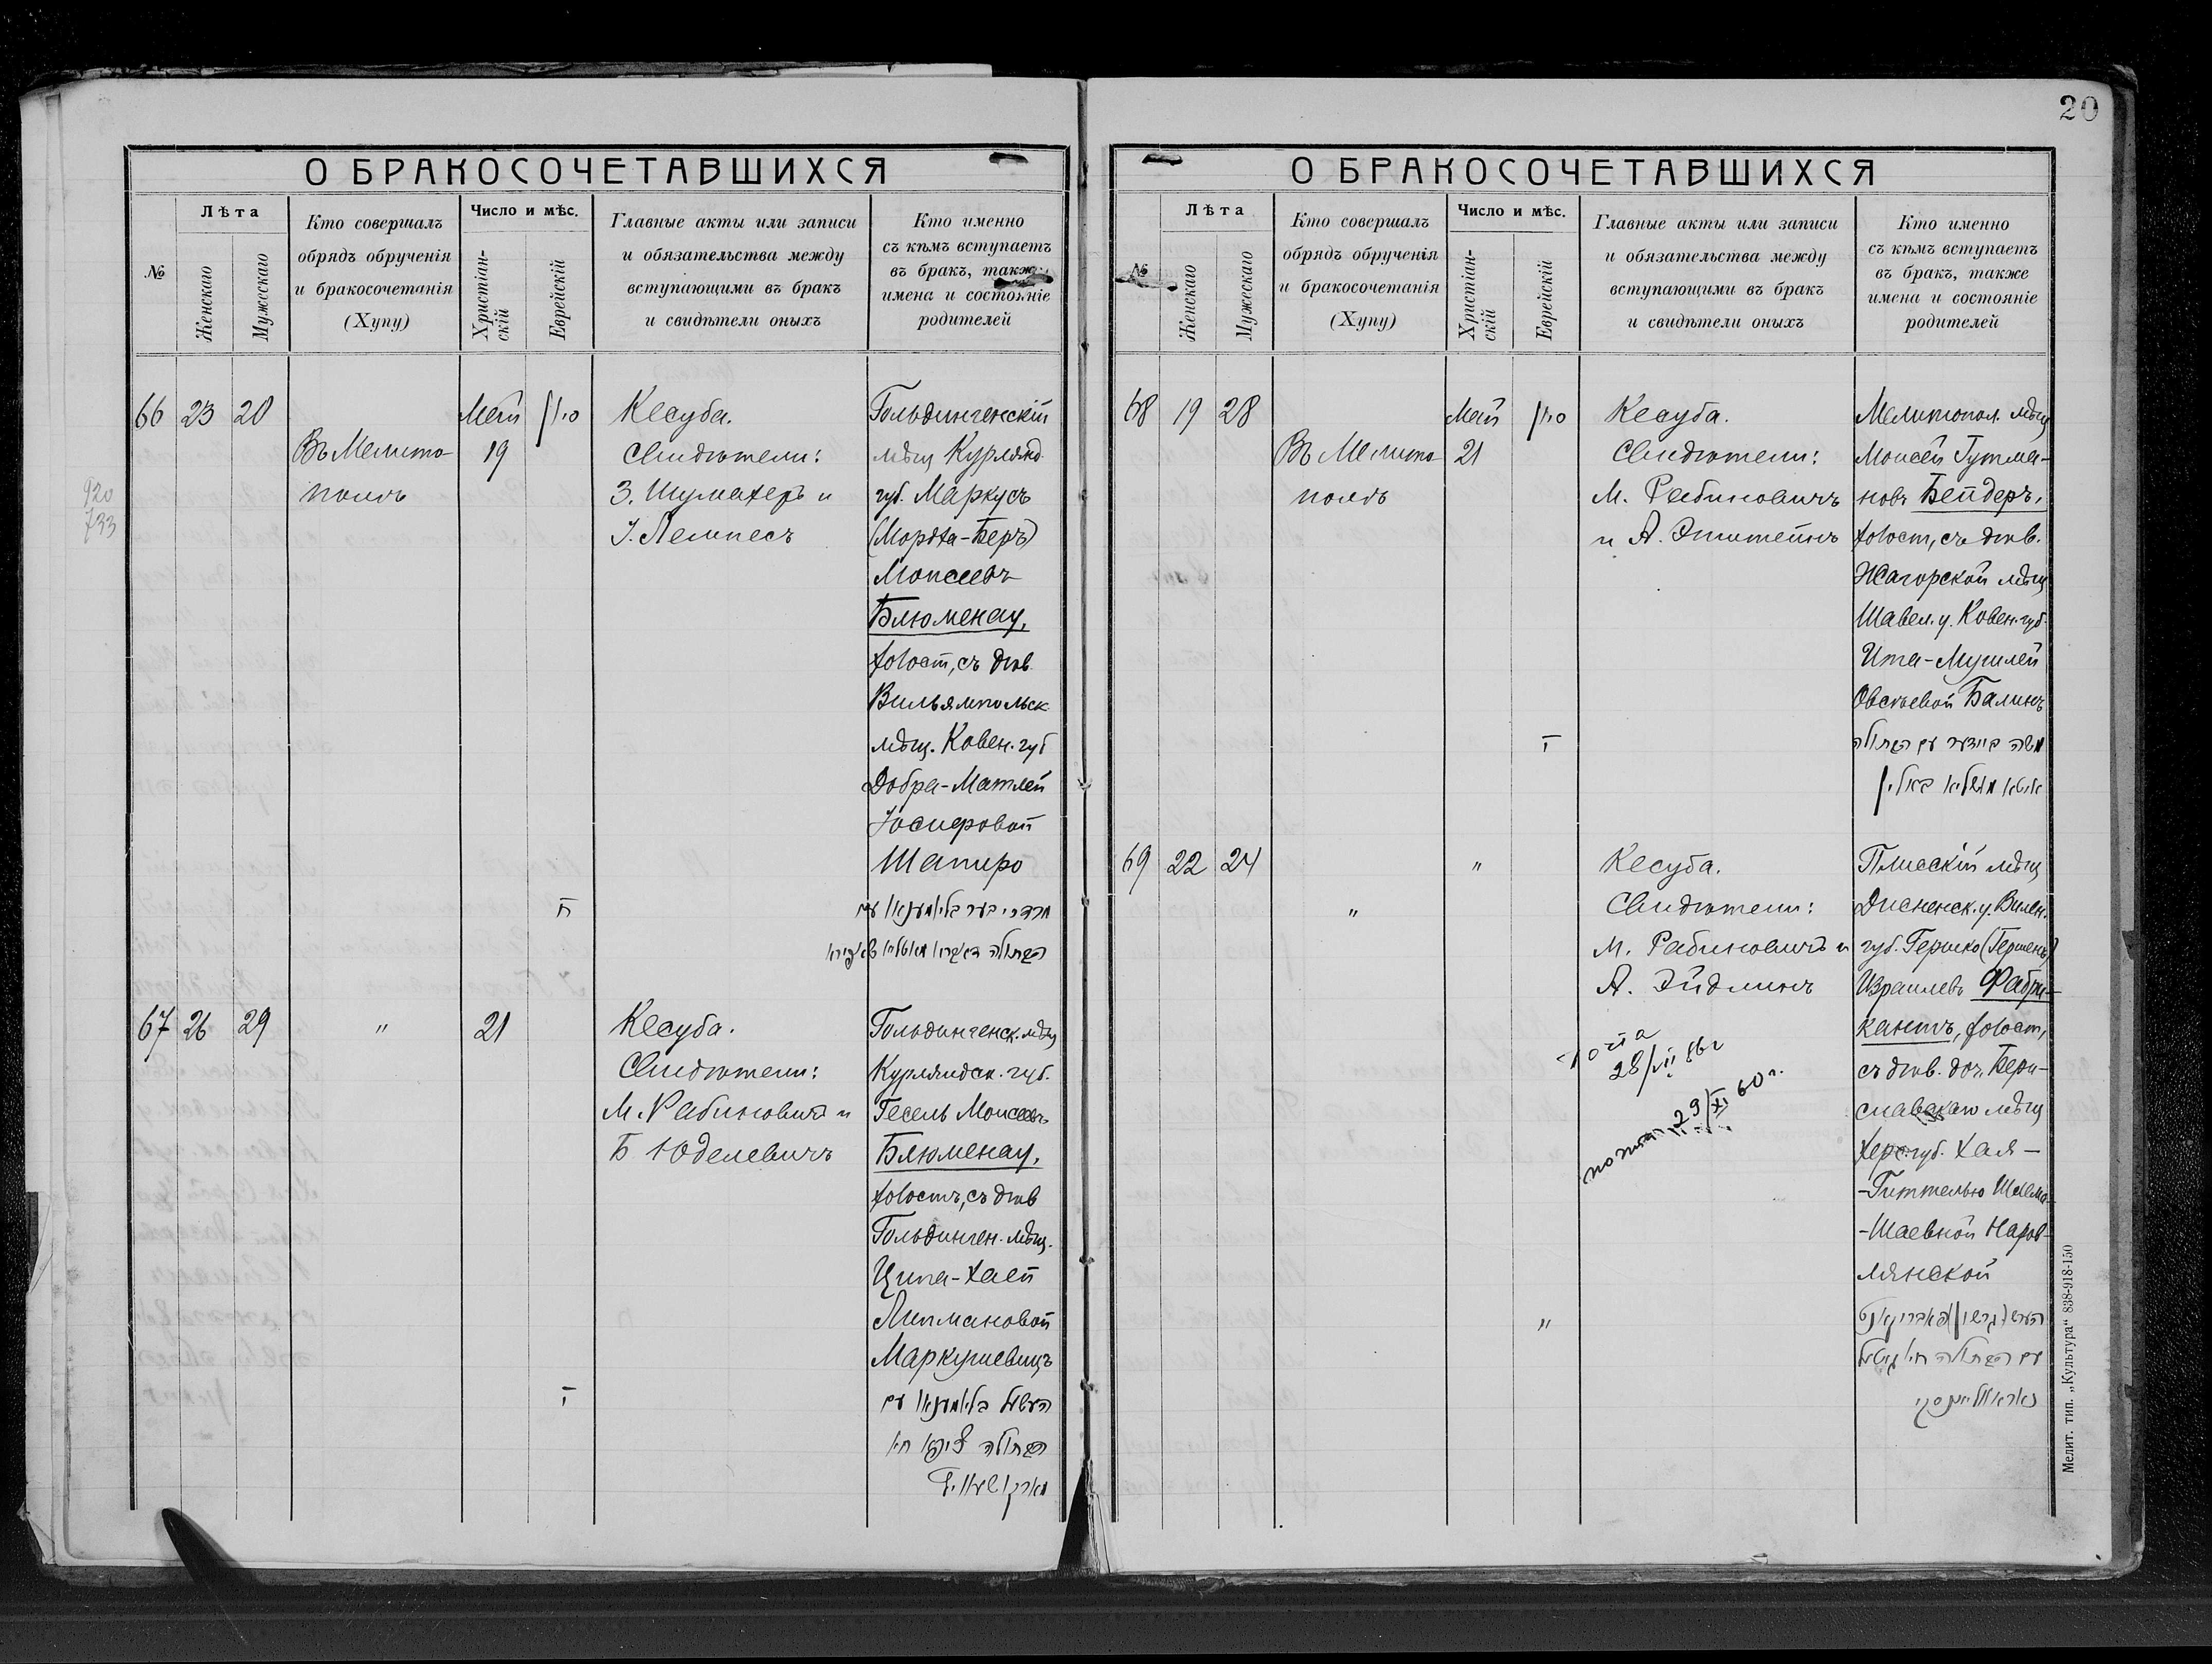 20
О БРАКОСОЧЕТАВШИХСЯ
№
Лѣта
Женскаго
Мужескаго
Кто совершалъ
обрядъ обрученія
и бракосочетанія
(Хупу)
Число и мѣс.
Христіан-
скій
Еврейскій
Главные акты или записи
и обязательства между
вступающими въ бракъ
и свидѣтели оныхъ
Кто именно
съ кѣмъ вступаетъ
въ бракъ, также
имена и состояніе
родителей
920
733
66 23 20
Въ Мелито-
полѣ
Май
19
סיון
ח
Кесуба.
Свидѣтели:
З. Шумахеръ и
І. Лемпесъ
Гольдингенскій
мѣщ Курлянд
губ. Маркусъ
(Мордха-Беръ)
Моисеевъ
Блюменау,
холост, съ дѣв
Вильямпольск
мѣщ. Ковен. губ
Добра-Матлей
Іосиферовой
Шапиро
מרדכי בער בליומענאו עם
הבתולה דאברא מאטליא שאפירא
67 26 29
"
21
י
Кесуба.
Свидѣтели:
М. Рабиновичъ и
Б Юделевичъ
Гольдингенск. мѣщ
Курляндск. губ.
Гесель Моисеевъ
Блюменау,
холостъ, съ дѣв
Гольдинген. мѣщ.
Ципа-Хаей
Липмановой
Маркушевицъ
העשיל בליומענאו עם
הבתולה ציפא חיא
מארקושעוויץ
О БРАКОСОЧЕТАВШИХСЯ
№
Лѣта
Женскаго
Мужескаго
Кто совершалъ
обрядъ обрученія
и бракосочетанія
(Хупу)
Число и мѣс.
Христіан-
скій
Еврейскій
Главные акты или записи
и обязательства между
вступающими въ бракъ
и свидѣтели оныхъ
Кто именно
съ кѣмъ вступаетъ
въ бракъ, также
имена и состояніе
родителей
68 19 28
Въ Мелито
полѣ
Май
21
סיון
י
Кесуба.
Свидѣтели:
М. Рабиновичъ
и А. Эпштейнъ
Мелитопол. мѣщ
Моисей Гутма-
новъ Бендеръ,
холост, съ дѣв.
Жагорской мѣщ
Шавел. у. Ковен. губ.
Ита-Мушлей
Овсѣевой Балинъ
משה בענדער עם הבתולה
איטא מושליא באלין
69 22 24
"
"
"
Кесуба.
Свидѣтели:
М. Рабиновичъ и
А. Эйдлинъ
28/VII 86г
29/XI 60 г.
Плисскій мѣщ
Дисненск. у. Вилен.
губ. Гершко (Гершенъ)
Израилевъ Фабри-
кантъ, холост,
съ дѣв. доч. Бери-
славскаго мѣщ
Херс. губ. Хая-
-Гиттелью Шлема-
-Шаевной Наров-
лянской
הערש (גרשון) פאבריקאנט
עם הבתולה חיא גיטל
נאראוליאנסקי
Мелит. тип. „Культура“ 838-918-150